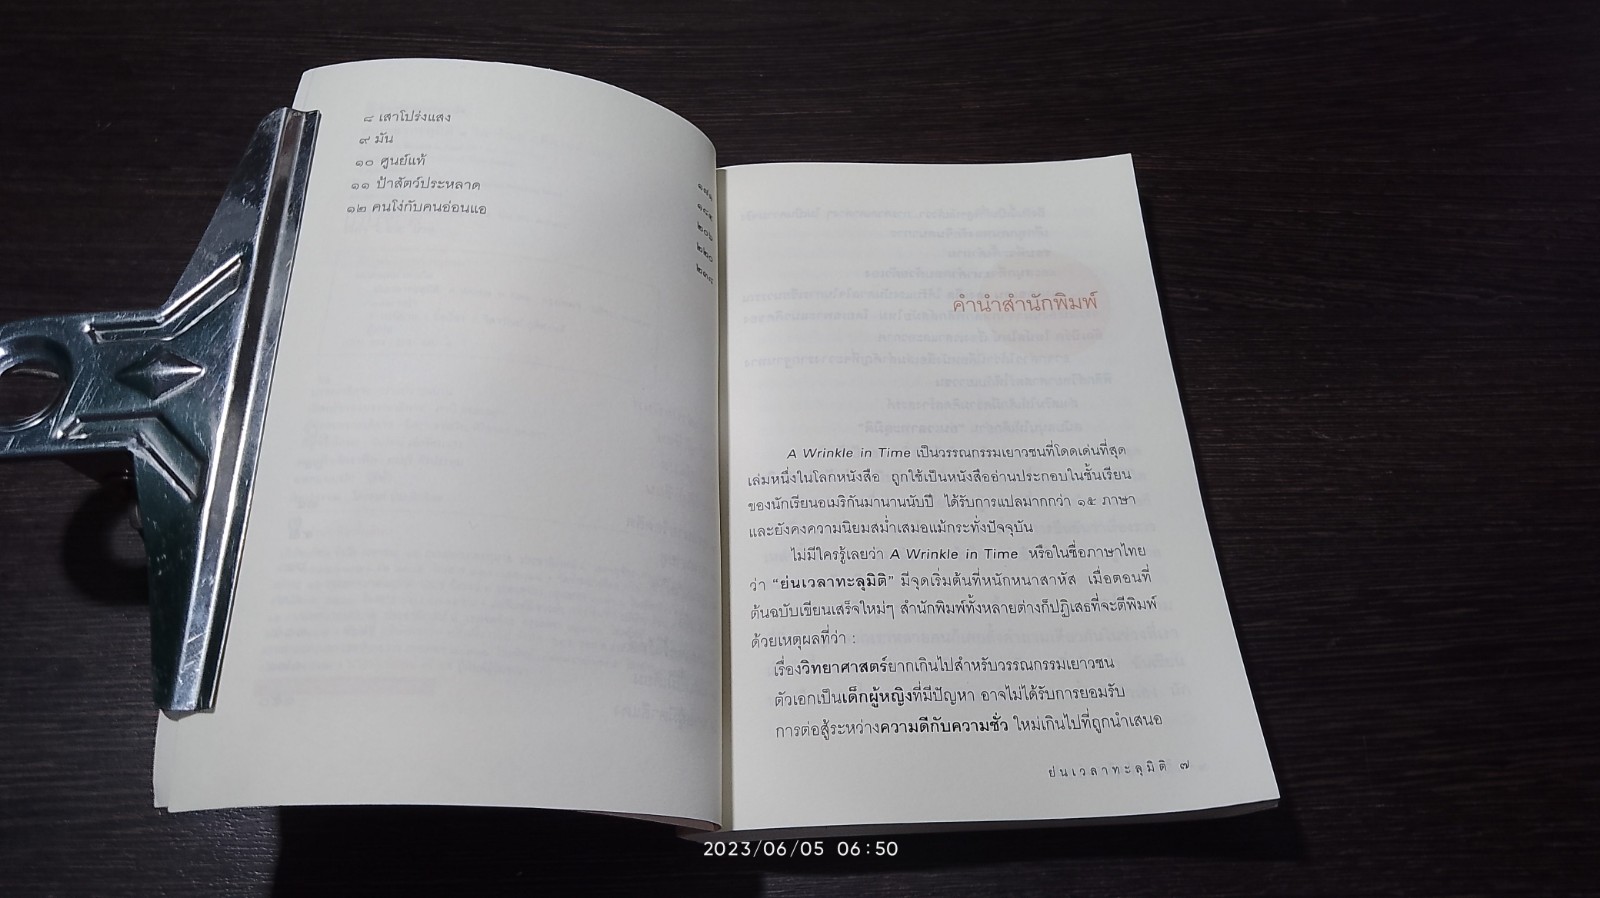 ๘ เสาโปร่งแสง
๙ มัน
๑๐ ศูนย์แท้
๑๑ ป้าสัตว์ประหลาด
๑๒ คนโง่กับคนอ่อนแอ
คำนำสำนักพิมพ์
A Wrinkle in Time เป็นวรรณกรรมเยาวชนที่โดดเด่นที่สุด
เล่มหนึ่งในโลกหนังสือ ถูกใช้เป็นหนังสืออ่านประกอบในชั้นเรียน
ของนักเรียนอเมริกันมานานนับปี ได้รับการแปลมากกว่า ๑๕ ภาษา
และยังคงความนิยมสม่ำเสมอแม้กระทั่งปัจจุบัน
ไม่มีใครรู้เลยว่า A Wrinkle in Time หรือในชื่อภาษาไทย
ว่า “ย่นเวลาทะลุมิติ” มีจุดเริ่มต้นที่หนักหนาสาหัส เมื่อตอนที่
ต้นฉบับเขียนเสร็จใหม่ๆ สำนักพิมพ์ทั้งหลายต่างก็ปฏิเสธที่จะตีพิมพ์
ด้วยเหตุผลที่ว่า :
เรื่องวิทยาศาสตร์ยากเกินไปสำหรับวรรณกรรมเยาวชน
ตัวเอกเป็นเด็กผู้หญิงที่มีปัญหา อาจไม่ได้รับการยอมรับ
การต่อสู้ระหว่างความดีกับความชั่ว ใหม่เกินไปที่ถูกนำเสนอ
ย่นเวลาทะลุมิติ ๗
2023/06/05 06:50